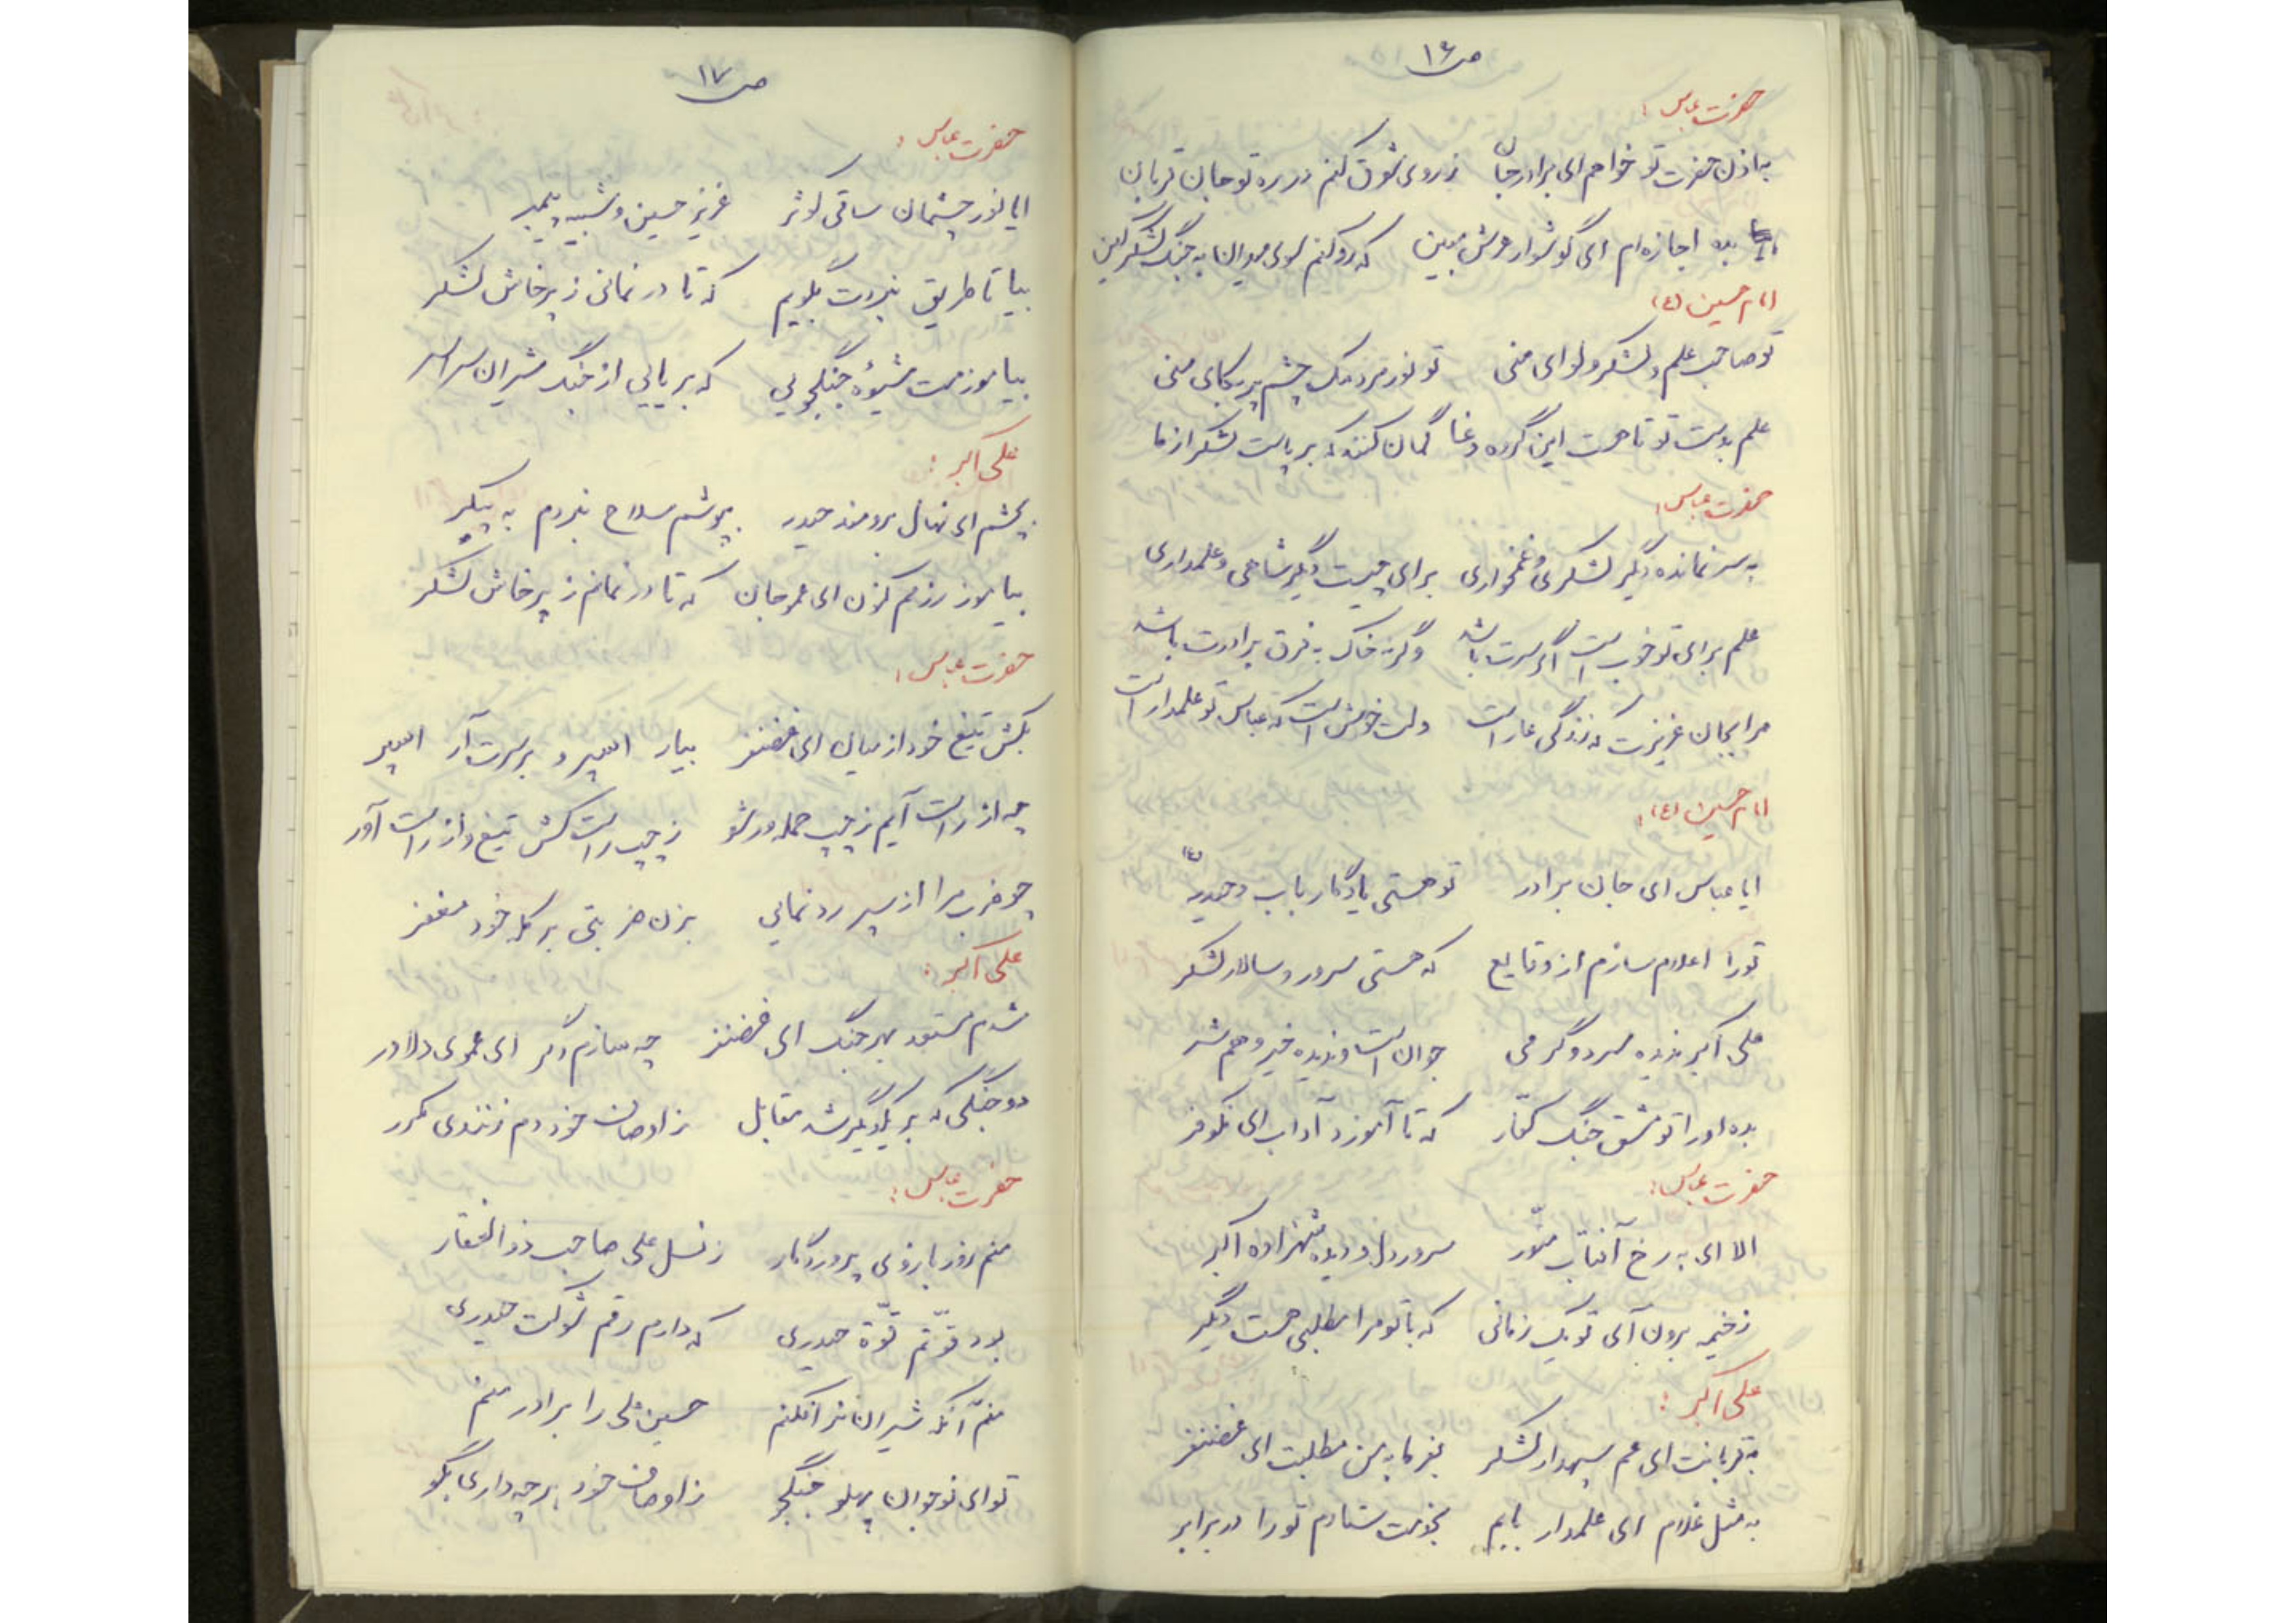 ص ۱۶
حضرت عباس:
به اذن حضرت تو خواهم ای برادر جان زروی شوق کنم در ره تو جان قربان
بده اجازه ام ای گوشوار عرش مبین که رو کنم سوی میدان به جنگ لشکر کین
امام حسین (ع)
تو صاحب علم و لشکر و لوای منی تو نور مردمک چشم پر بکای منی
علم بدست تو تا هست این گروه دغا گمان کنند که برپاست لشکر از ما
حضرت عباس:
به سر نمانده دگر لشکری و غمخواری برای چیست دگر شاهی و علمداری
علم برای تو خوب است اگر سرت باشد وگرنه خاک به فرق برادرت باشد
مرا بجان عزیزت که زندگی عار است دلت خوش است که عباس تو علمدار است
امام حسین (ع):
ایا عباس ای جان برادر تو هستی یادگار باب و حیدر
تو را اعلام سازم از وقایع که هستی سرور و سالار لشکر
علی اکبر ندیده سرد و گرمی جوان است و ندیده خیر و هم شر
بده او را تو مشق جنگ کفار که تا آموزد آداب ای نکوفر
حضرت عباس:
الا ای به رخ آفتاب منّور سرور دل و دیده شهزاده اکبر
زخیمه برون آی تو یک زمانی که با تو مرا مطلبی هست دیگر
علی اکبر:
به قربانت ای عم سپهدار لشکر بفرما به من مطلبت ای غضنفر
به مثل غلام ای علمدار بابم بخدمت ستادم تو را در برابر
ص ۱۷
حضرت عباس:
ایا نور چشمان ساقی کوثر عزیز حسین و شبیه پیمبر
بیا تا طریق نبردت بگویم که تا در نمانی ز پرخاش لشکر
بیاموزمت شیوهٔ جنگجویی که بر یایی از جنگ شیران سراسر
علی اکبر:
بچشم ای نهال برومند حیدر بپوشم سلاح نبردم به پیکر
بیاموز رزمم کنون ای عمو جان که تا در نمانم ز پرخاش لشکر
حضرت عباس:
بکش تیغ خود از میان ای غضنفر بیار اسپر و بر سرت آر اسپر
چه از راست آیم ز چپ حمله ور شو ز چپ راست کش تیغ و از راست آور
چو ضرب مرا از سپر رد نمایی بزن ضربتی بر کله خود مغفر
علی اکبر:
شدم مستعد بهر جنگ ای غضنفر چه سازم دگر ای عموی دلاور
دو جنگی که بر یکدیگر شد مقابل ز اوصاف خود دم زنندی مکرر
حضرت عباس:
منم زور بازوی پروردگار ز نسل علی صاحب ذوالفقار
بود قوّتم قوّة حیدری که دارم رقم شوکت حیدری
منم آنکه شیران نر افکنم حسین علی را برادر منم
تو ای نوجوان پهلو جنگجو ز اوصاف خود هر چه داری بگو